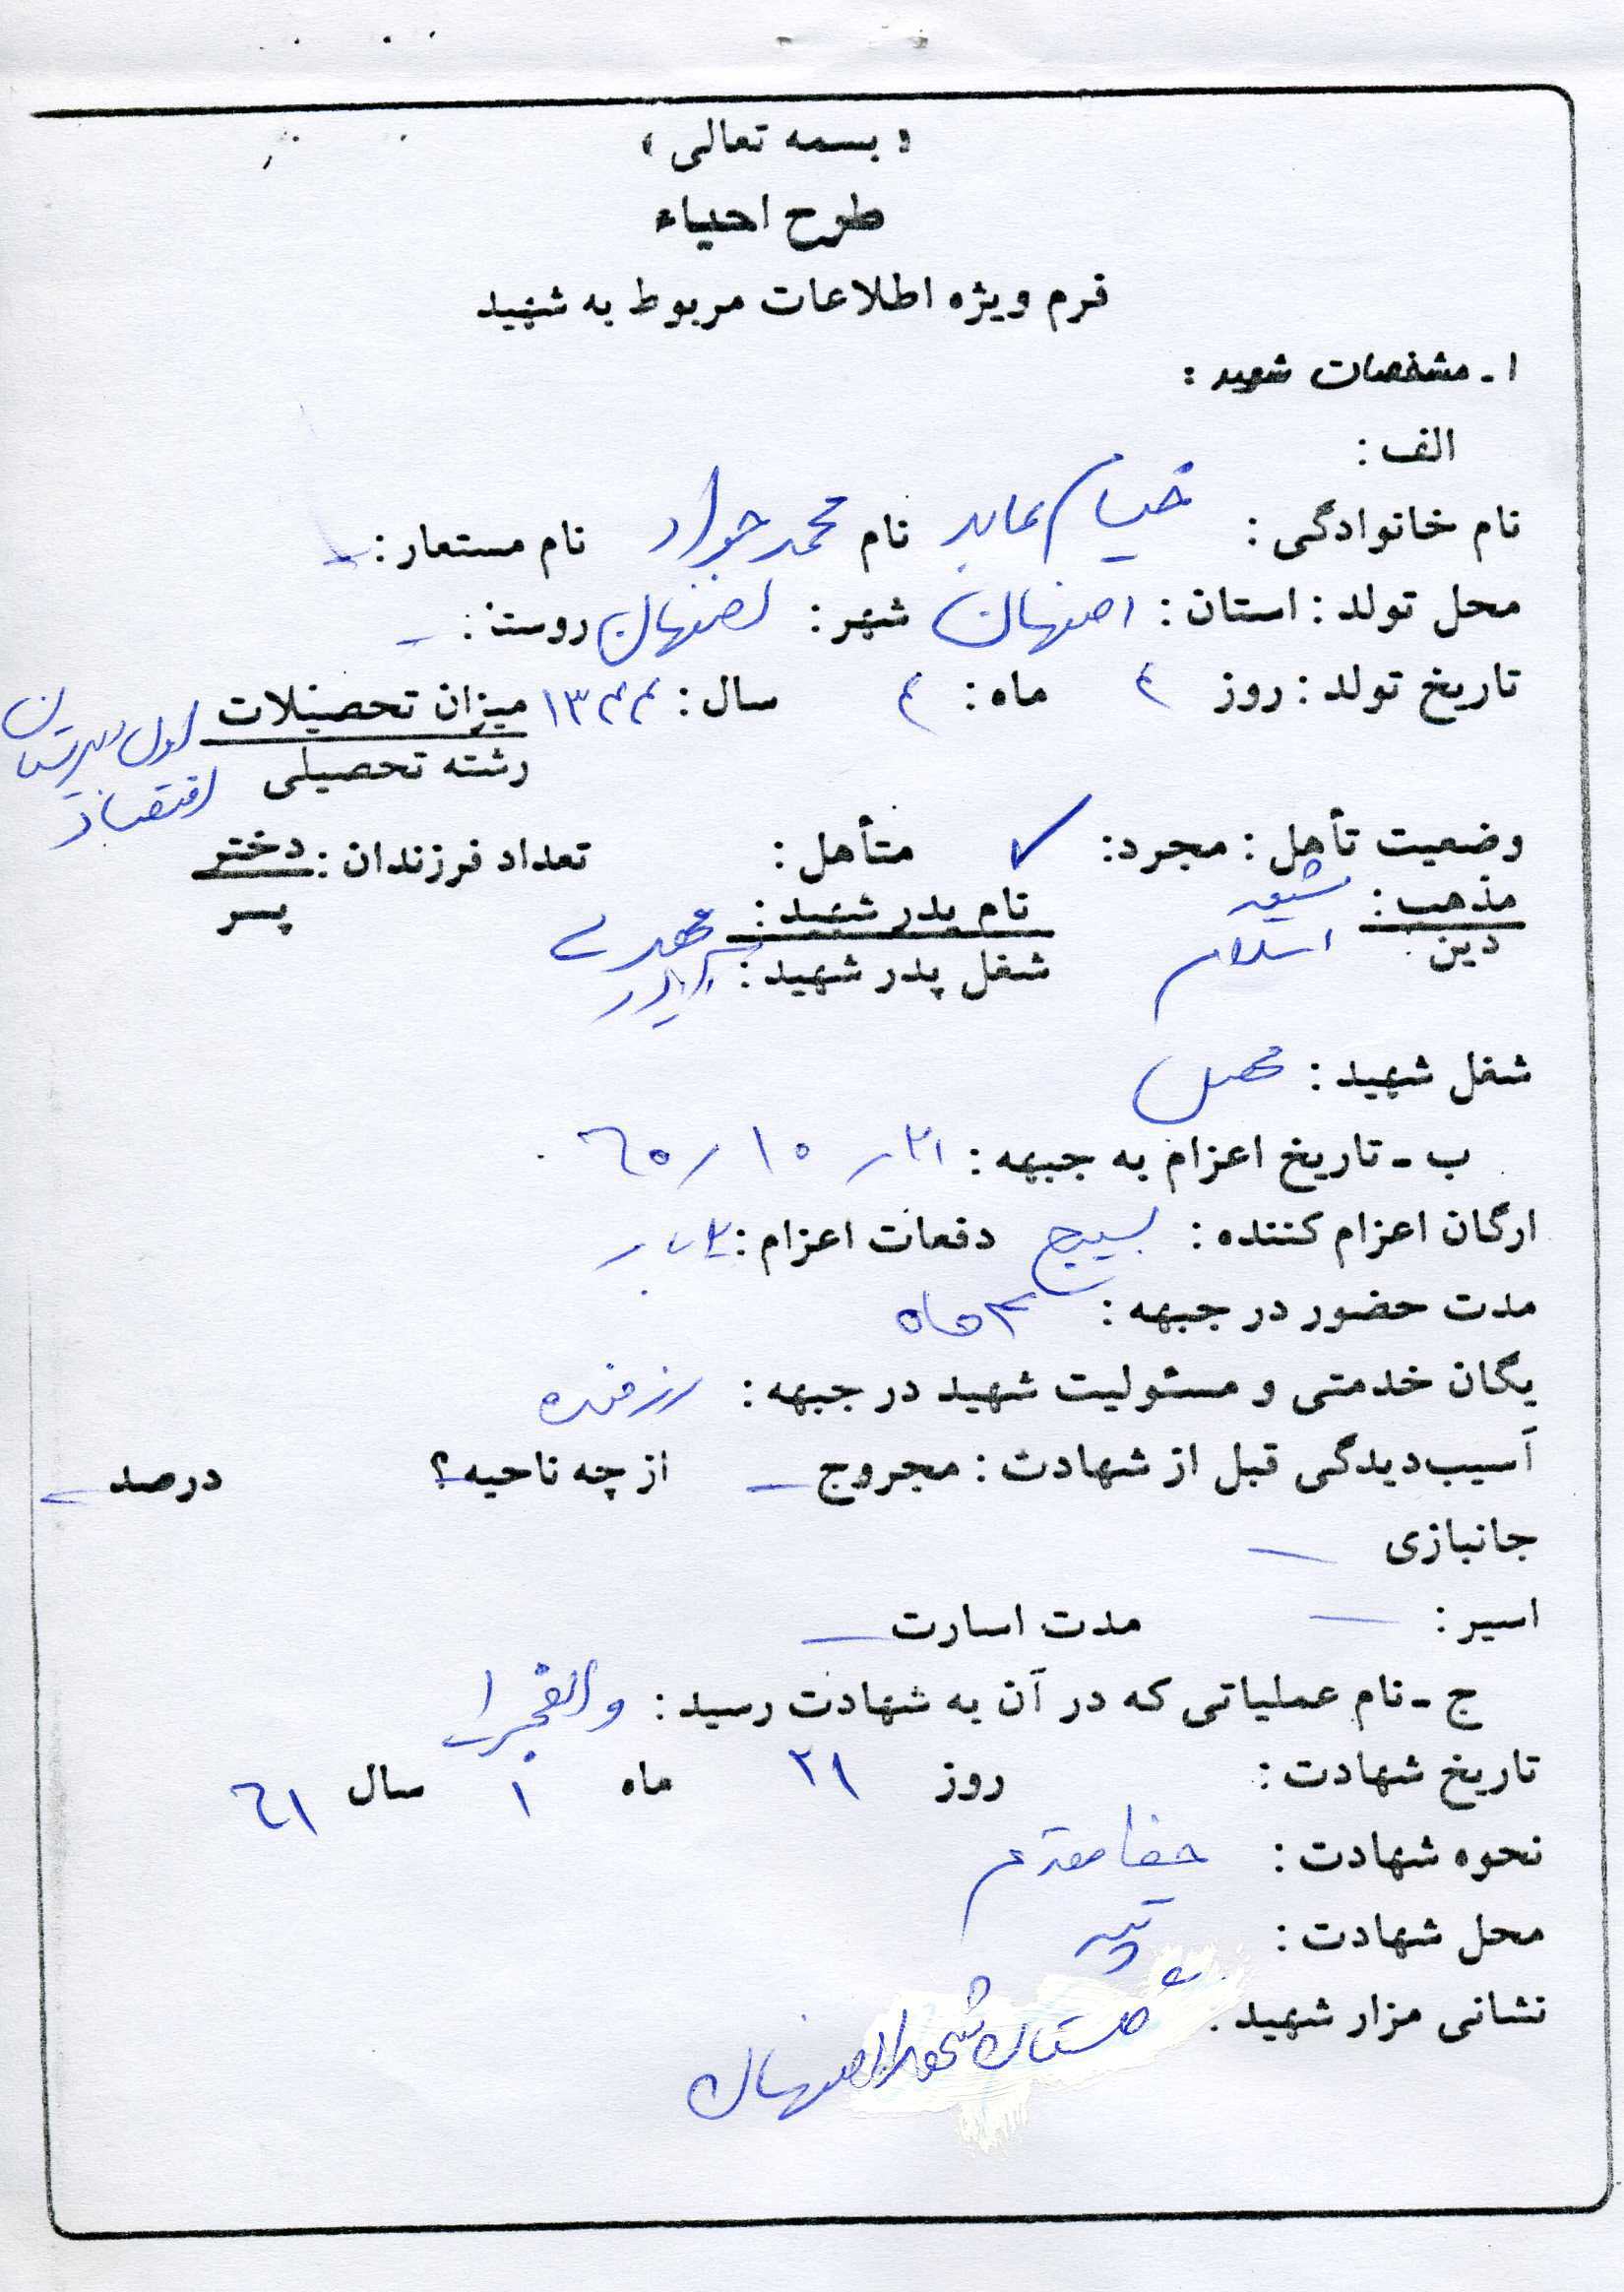 « بسمه تعالی »
طرح احیاء
فرم ویژه اطلاعات مربوط به شهید
۱ـ مشخصات شهید :
الف :
نام خانوادگی : خیام عابد نام محمد جواد نام مستعار : ـ
محل تولد : استان : اصفهان شهر : اصفهان روستا : ـ
تاریخ تولد : روز ٤ ماه : ٤ سال : ۱۳۴۴ میزان تحصیلات اول دبیرستان
رشته تحصیلی اقتصاد
وضعیت تأهل : مجرد : ✓ متأهل : تعداد فرزندان : دختر
پسر
مذهب : شیعه نام پدر شهید : مهدی
دین اسلام شغل پدر شهید :
شغل شهید : محصل
ب ـ تاریخ اعزام به جبهه : ۲۱ / ۱۰ / ٦۰
ارگان اعزام کننده : بسیج دفعات اعزام :
مدت حضور در جبهه : ۳ ماه
یگان خدمتی و مسئولیت شهید در جبهه : رزمنده
آسیب‌دیدگی قبل از شهادت : مجروح ـ از چه ناحیه ؟ درصد ـ
جانبازی ـ
اسیر : ـ مدت اسارت ـ
ج ـ نام عملیاتی که در آن به شهادت رسید : والفجر ۱
تاریخ شهادت : روز ۲۱ ماه ۱ سال ٦۱
نحوه شهادت : خط مقدم
محل شهادت :
نشانی مزار شهید : گلستان شهدا اصفهان